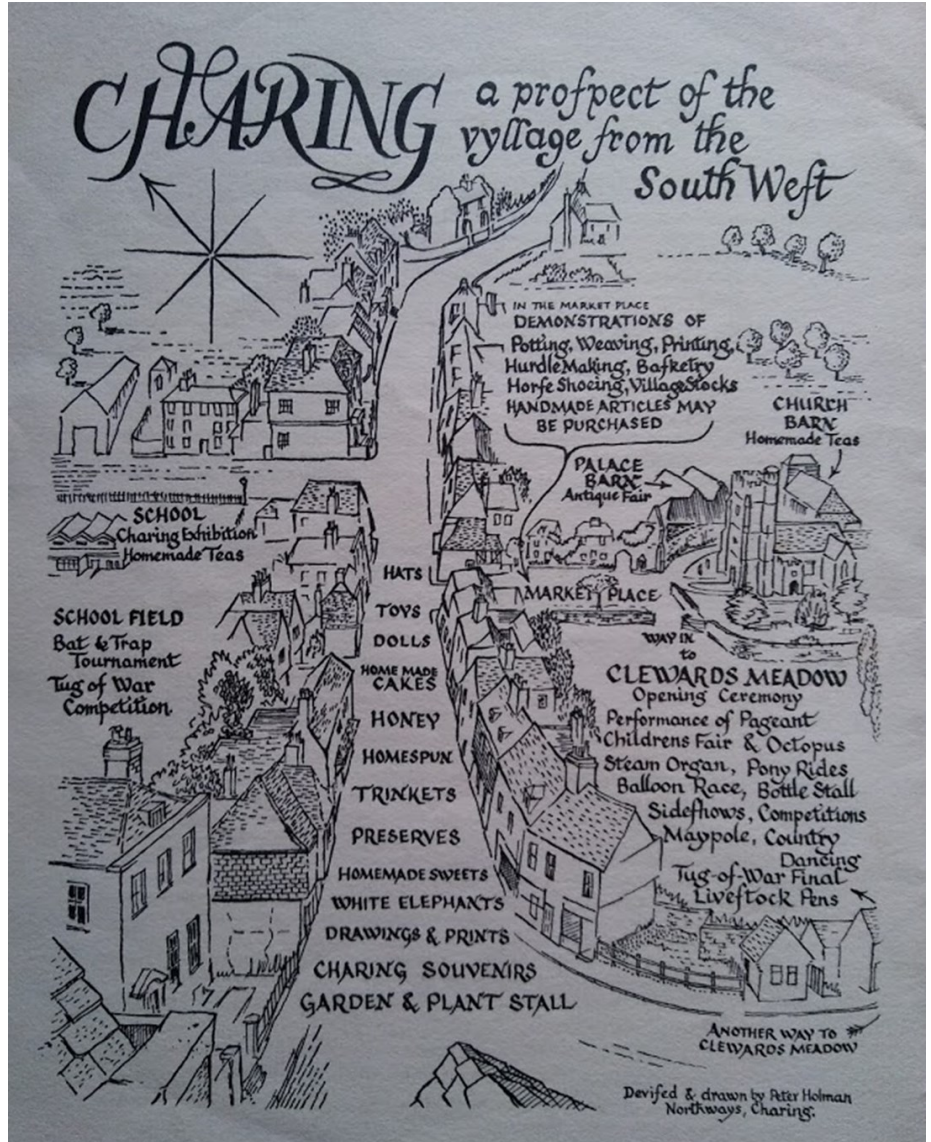 CHARING
a profpect of the
vyllage from the
South Weft
IN THE MARKET PLACE
DEMONSTRATIONS OF
Potting, Weaving, Printing,
Hurdle Making, Bafketry
Horfe Shoeing, Village Stocks
HANDMADE ARTICLES MAY
BE PURCHASED
CHURCH
BARN
Homemade Teas
PALACE
BARN
Antique Fair
SCHOOL
Charing Exhibition
Homemade Teas
SCHOOL FIELD
Bat & Trap
Tournament
Tug of War
Competition
HATS
TOYS
DOLLS
HOME MADE
CAKES
HONEY
HOMESPUN
TRINKETS
PRESERVES
HOMEMADE SWEETS
WHITE ELEPHANTS
DRAWINGS & PRINTS
CHARING SOUVENIRS
GARDEN & PLANT STALL
MARKET PLACE
WAY IN
to
CLEWARDS MEADOW
Opening Ceremony
Performance of Pageant
Childrens Fair & Octopus
Steam Organ, Pony Rides
Balloon Race, Bottle Stall
Sidefhows, Competitions
Maypole, Country
Dancing
Tug-of-War Final
Liveftock Pens
ANOTHER WAY TO
CLEWARDS MEADOW
Devifed & drawn by Peter Holman
Northways, Charing.